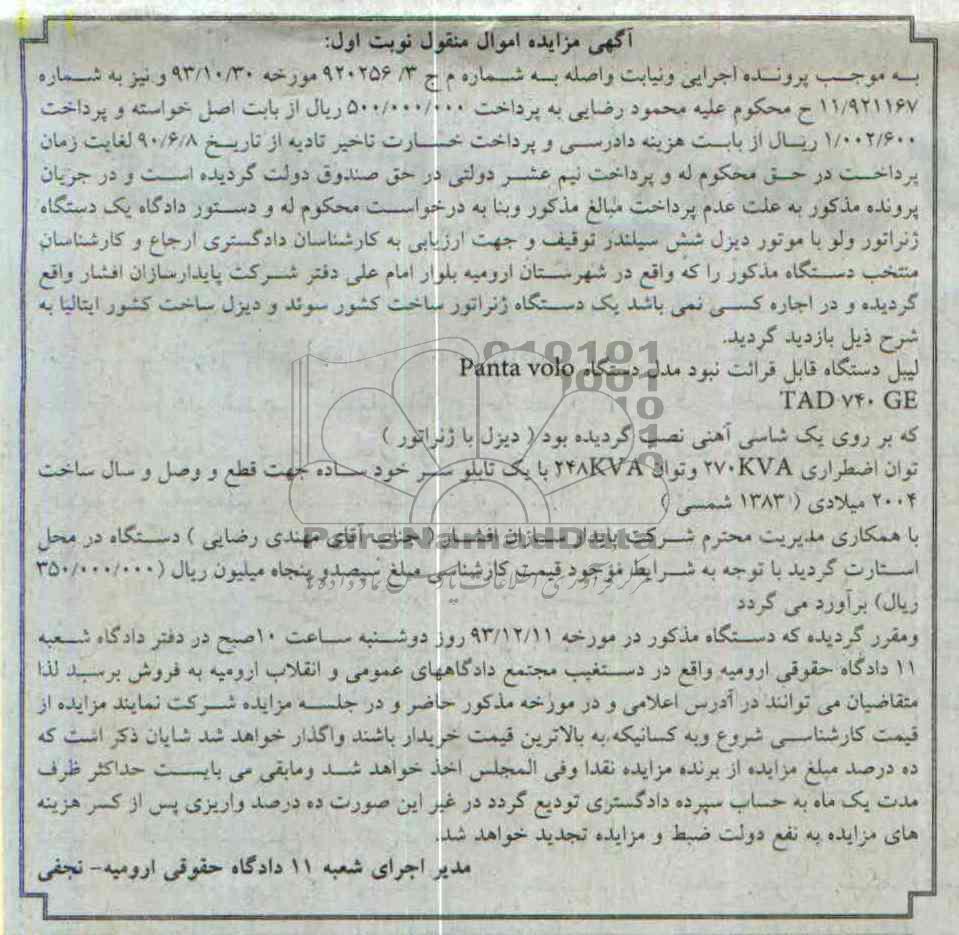 آگهی مزایده اموال منقول نوبت اول:
به موجب پرونده اجرایی ونیابت واصله به شماره م ج ۳/ ۹۲۰۲۵۶ مورخه ۹۳/۱۰/۳۰ و نیز به شماره
۱۱/۹۲۱۱۶۷ ح محکوم علیه محمود رضایی به پرداخت ۵۰۰/۰۰۰/۰۰۰ ریال از بابت اصل خواسته و پرداخت
۱/۰۰۲/۶۰۰ ریال از بابت هزینه دادرسی و پرداخت خسارت تاخیر تادیه از تاریخ ۹۰/۶/۸ لغایت زمان
پرداخت در حق محکوم له و پرداخت نیم عشر دولتی در حق صندوق دولت گردیده است و در جریان
پرونده مذکور به علت عدم پرداخت مبالغ مذکور وبنا به درخواست محکوم له و دستور دادگاه یک دستگاه
ژنراتور ولو با موتور دیزل شش سیلندر توقیف و جهت ارزیابی به کارشناسان دادگستری ارجاع و کارشناسان
منتخب دستگاه مذکور را که واقع در شهرستان ارومیه بلوار امام علی دفتر شرکت پایدارسازان افشار واقع
گردیده و در اجاره کسی نمی باشد یک دستگاه ژنراتور ساخت کشور سوئد و دیزل ساخت کشور ایتالیا به
شرح ذیل بازدید گردید.
لیبل دستگاه قابل قرائت نبود مدل دستگاه Panta volo
TAD ۷۴۰ GE
که بر روی یک شاسی آهنی نصب گردیده بود ( دیزل با ژنراتور )
توان اضطراری ۲۷۰KVA وتوان ۲۴۸KVA با یک تابلو سر خود ساده جهت قطع و وصل و سال ساخت
۲۰۰۴ میلادی ( ۱۳۸۳ شمسی )
با همکاری مدیریت محترم شرکت پایدار سازان افشار ( جناب آقای مهندی رضایی ) دستگاه در محل
استارت گردید با توجه به شرایط موجود قیمت کارشناسی مبلغ سیصدو پنجاه میلیون ریال (۳۵۰/۰۰۰/۰۰۰
ریال) برآورد می گردد
ومقرر گردیده که دستگاه مذکور در مورخه ۹۳/۱۲/۱۱ روز دوشنبه ساعت ۱۰صبح در دفتر دادگاه شعبه
۱۱ دادگاه حقوقی ارومیه واقع در دستغیب مجتمع دادگاههای عمومی و انقلاب ارومیه به فروش برسد لذا
متقاضیان می توانند در آدرس اعلامی و در مورخه مذکور حاضر و در جلسه مزایده شرکت نمایند مزایده از
قیمت کارشناسی شروع وبه کسانیکه به بالاترین قیمت خریدار باشند واگذار خواهد شد شایان ذکر است که
ده درصد مبلغ مزایده از برنده مزایده نقدا وفی المجلس اخذ خواهد شد ومابقی می بایست حداکثر ظرف
مدت یک ماه به حساب سپرده دادگستری تودیع گردد در غیر این صورت ده درصد واریزی پس از کسر هزینه
های مزایده به نفع دولت ضبط و مزایده تجدید خواهد شد.
مدیر اجرای شعبه ۱۱ دادگاه حقوقی ارومیه- نجفی
ParsNamadData